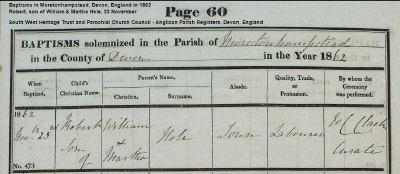 Page 60
Baptisms in Moretonhampstead, Devon, England in 1862
Robert, son of William & Martha Hole, 22 November
South West Heritage Trust and Parochial Church Council - Anglican Parish Registers, Devon, England
BAPTISMS solemnized in the Parish of Moretonhampstead
in the County of Devon in the Year 1862
When Baptized. Child's Christian Name. Parent's Name. Christian. Surname. Abode. Quality, Trade, or Profession. By whom the Ceremony was performed.
1862
Novr Robert William Hole Town Labourer
Son of & Martha Curate
No. 473